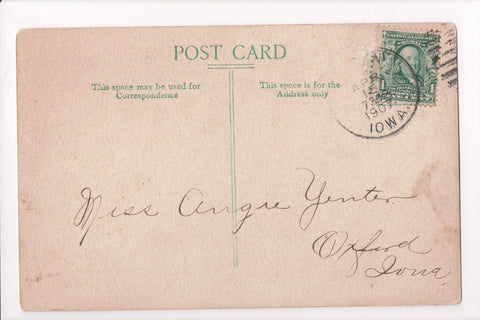 POST CARD
This space may be used for
Correspondence
This space is for the
Address only
1907
IOWA.
Miss Angie Yenter
Oxford
Iowa